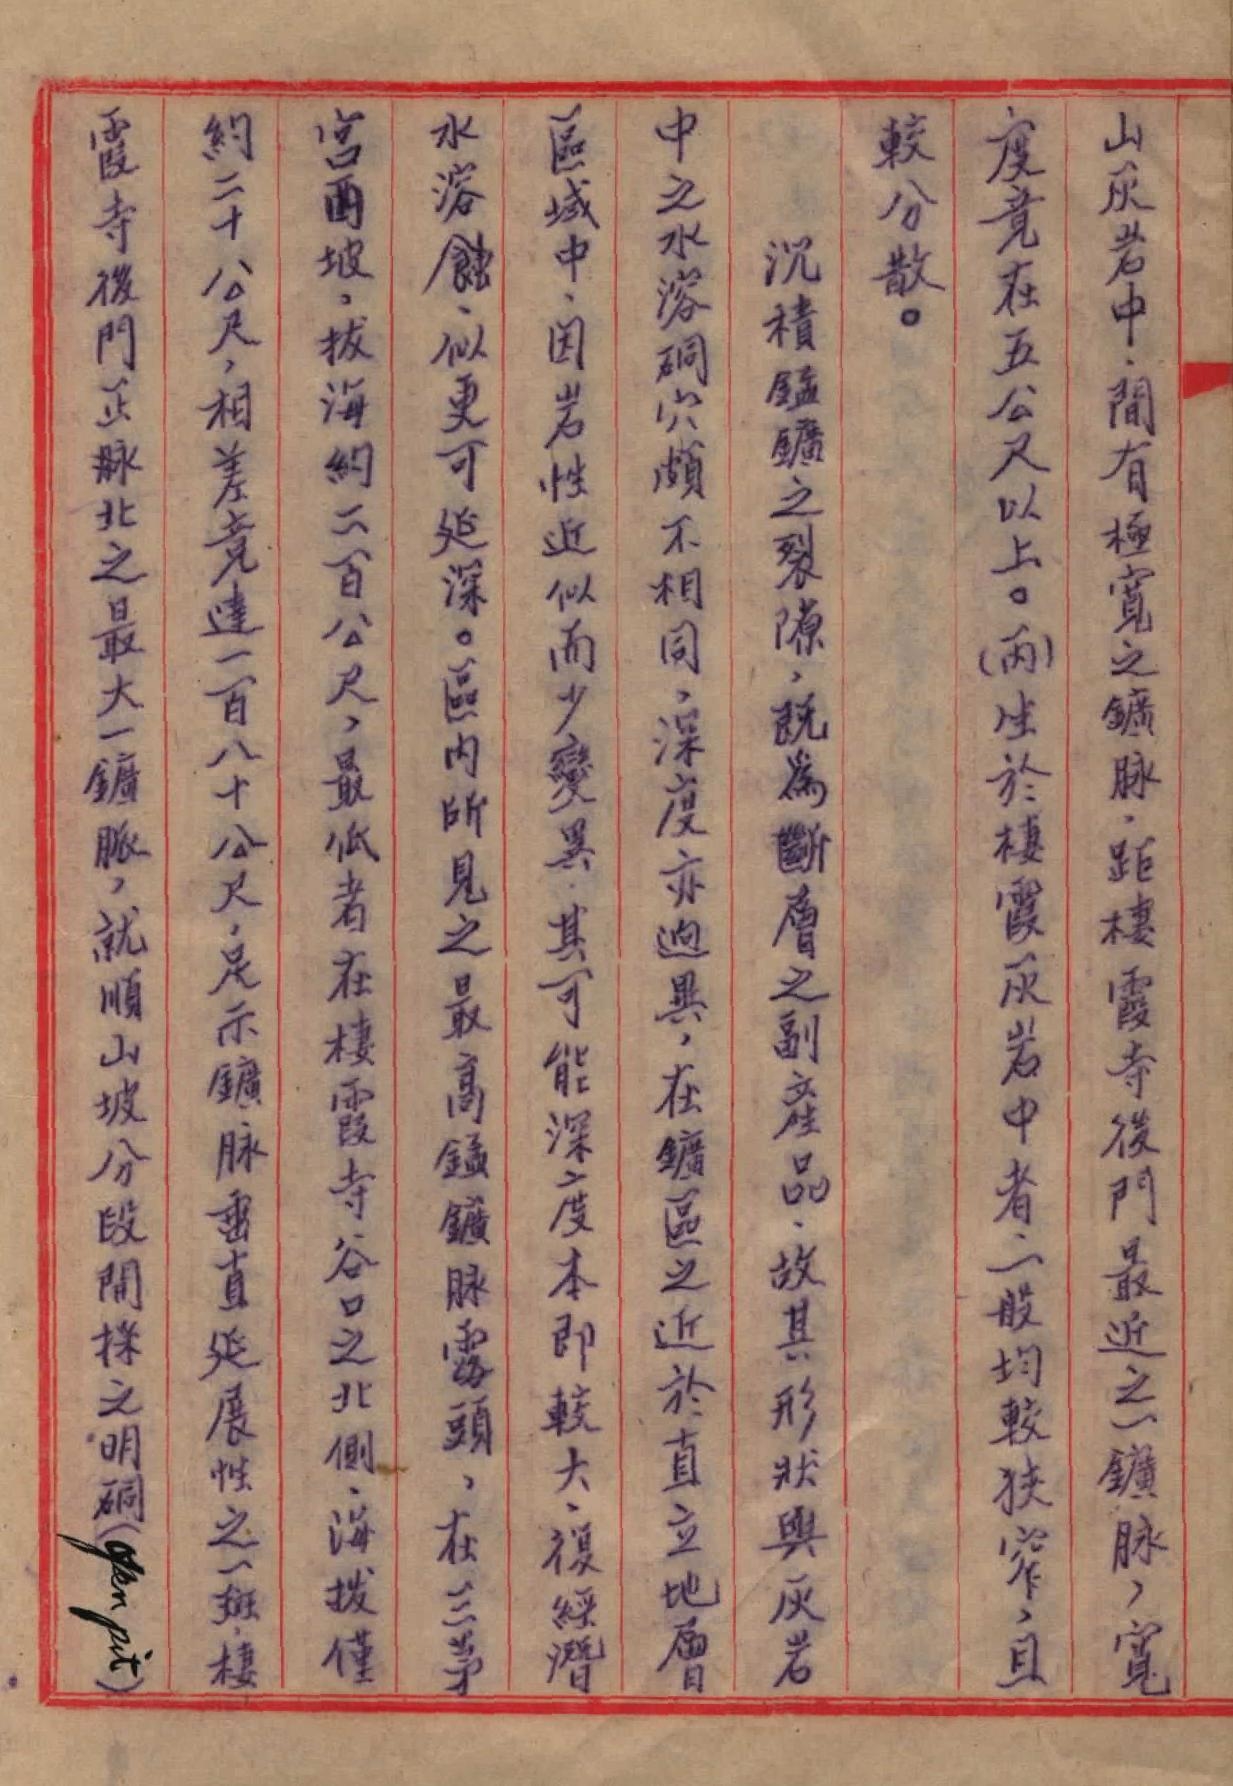 山灰岩中、間有極寬之鑛脉、距棲霞寺後門最近之一鑛脉，寬
度竟在五公尺以上。(丙)生於棲霞灰岩中者、一般均較狹窄，且
較分散。
沉積錳鑛之裂隙，既為斷層之副產品、故其形狀與灰岩
中之水溶硐穴頗不相同，深度亦逈異，在鑛區之近於直立地層
區域中、因岩性近似而少變異、其可能深度本即較大、復經潛
水溶蝕、似更可延深。區内所見之最高錳鑛脉露頭，在三茅
宮西坡，拔海約二百公尺，最低者在棲霞寺谷口之北側、海拔僅
約二十公尺，相差竟達一百八十公尺，足示鑛脉垂直延展性之一斑、棲
霞寺後門正脉北之最大一鑛脈，就順山坡分段開採之明硐(open pit)